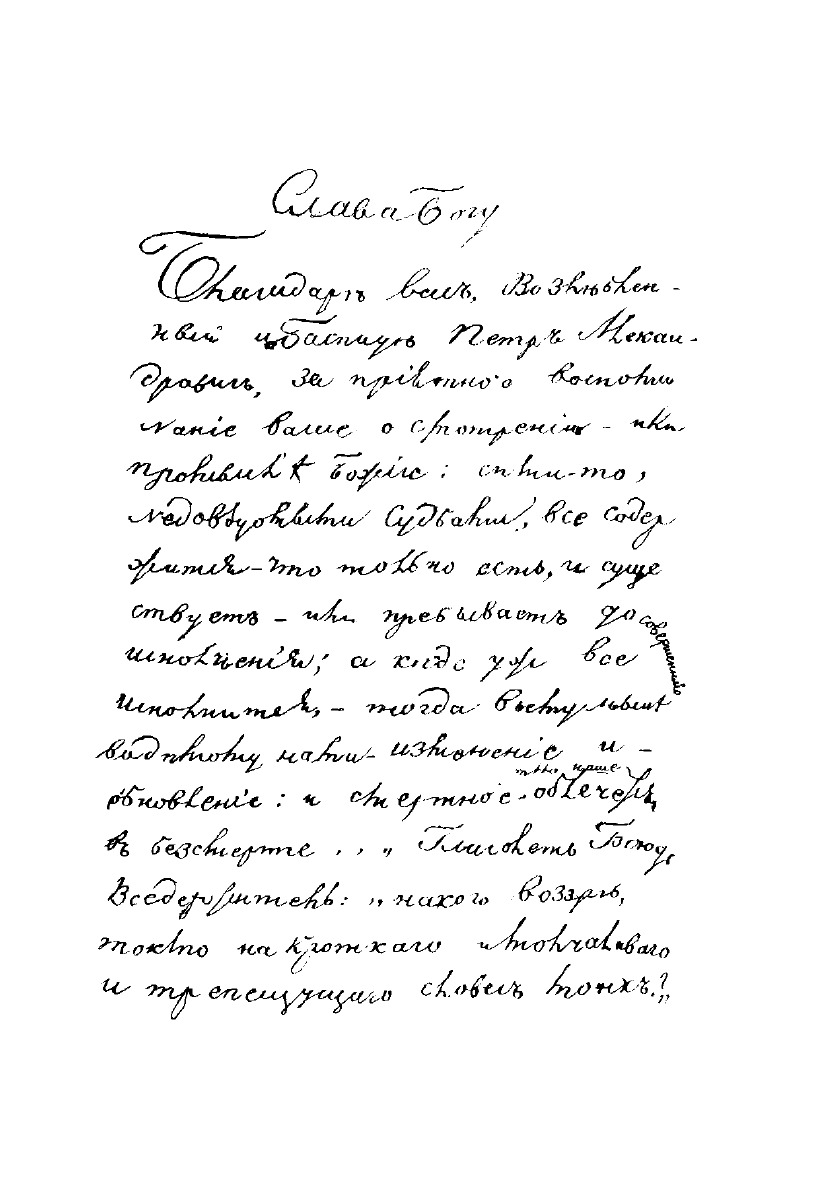 Слава Богу
Благодарю васъ, Возлюблен-
ный и Батюшка Петръ Алексан-
дровичъ, за пріятное воспоми
наніе ваше о смотреніи - или
промыслѣ Божіе: симъ-то,
недовѣдомыми Судьбами, все содер
жится - что только есть, и суще
ствуетъ - или пребываетъ до совершеннаго
исполненія; а когда уже все
исполнится, - тогда
измененіе и -
обновленіе: и смертное - тѣло наше облечемъ
въ безсмертіе . . „ Глаголетъ Господь
Вседержитель: „ на кого воззрю,
токмо на кроткаго и молчаливаго
и трепещущаго словесъ моихъ?„